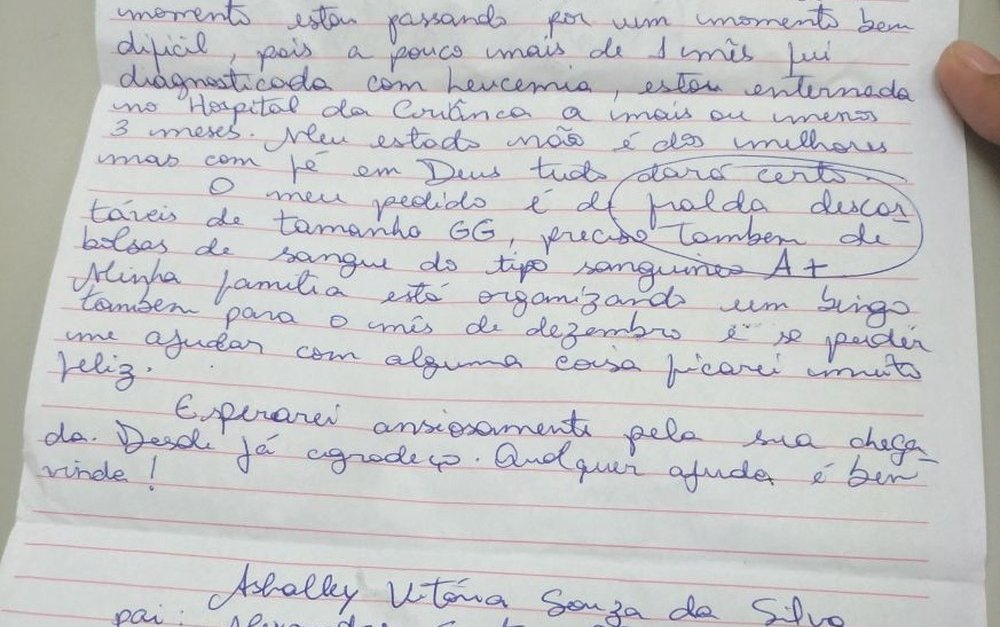 momento estou passando por um momento bem
dificil, pois a pouco mais de 1 mês fui
diagnosticada com Leucemia, estou enternada
no Hospital da Criânca a mais ou menos
3 meses. Meu estado não é dos melhores
mas com fé em Deus tudo dará certo
O meu pedido é de fralda descar
táveis de tamanho GG, preciso tambem de
bolsas de sangue do tipo sanguineo A+
Minha família está organizando um bingo
tambem para o mês de dezembro e se poder
me ajudar com alguma coisa ficarei muito
feliz.
Esperarei ansiosamente pela sua chega
da. Desde já agradeço. Qualquer ajuda é bem
vinda!
Ashalley Vitória Souza da Silva
pai: